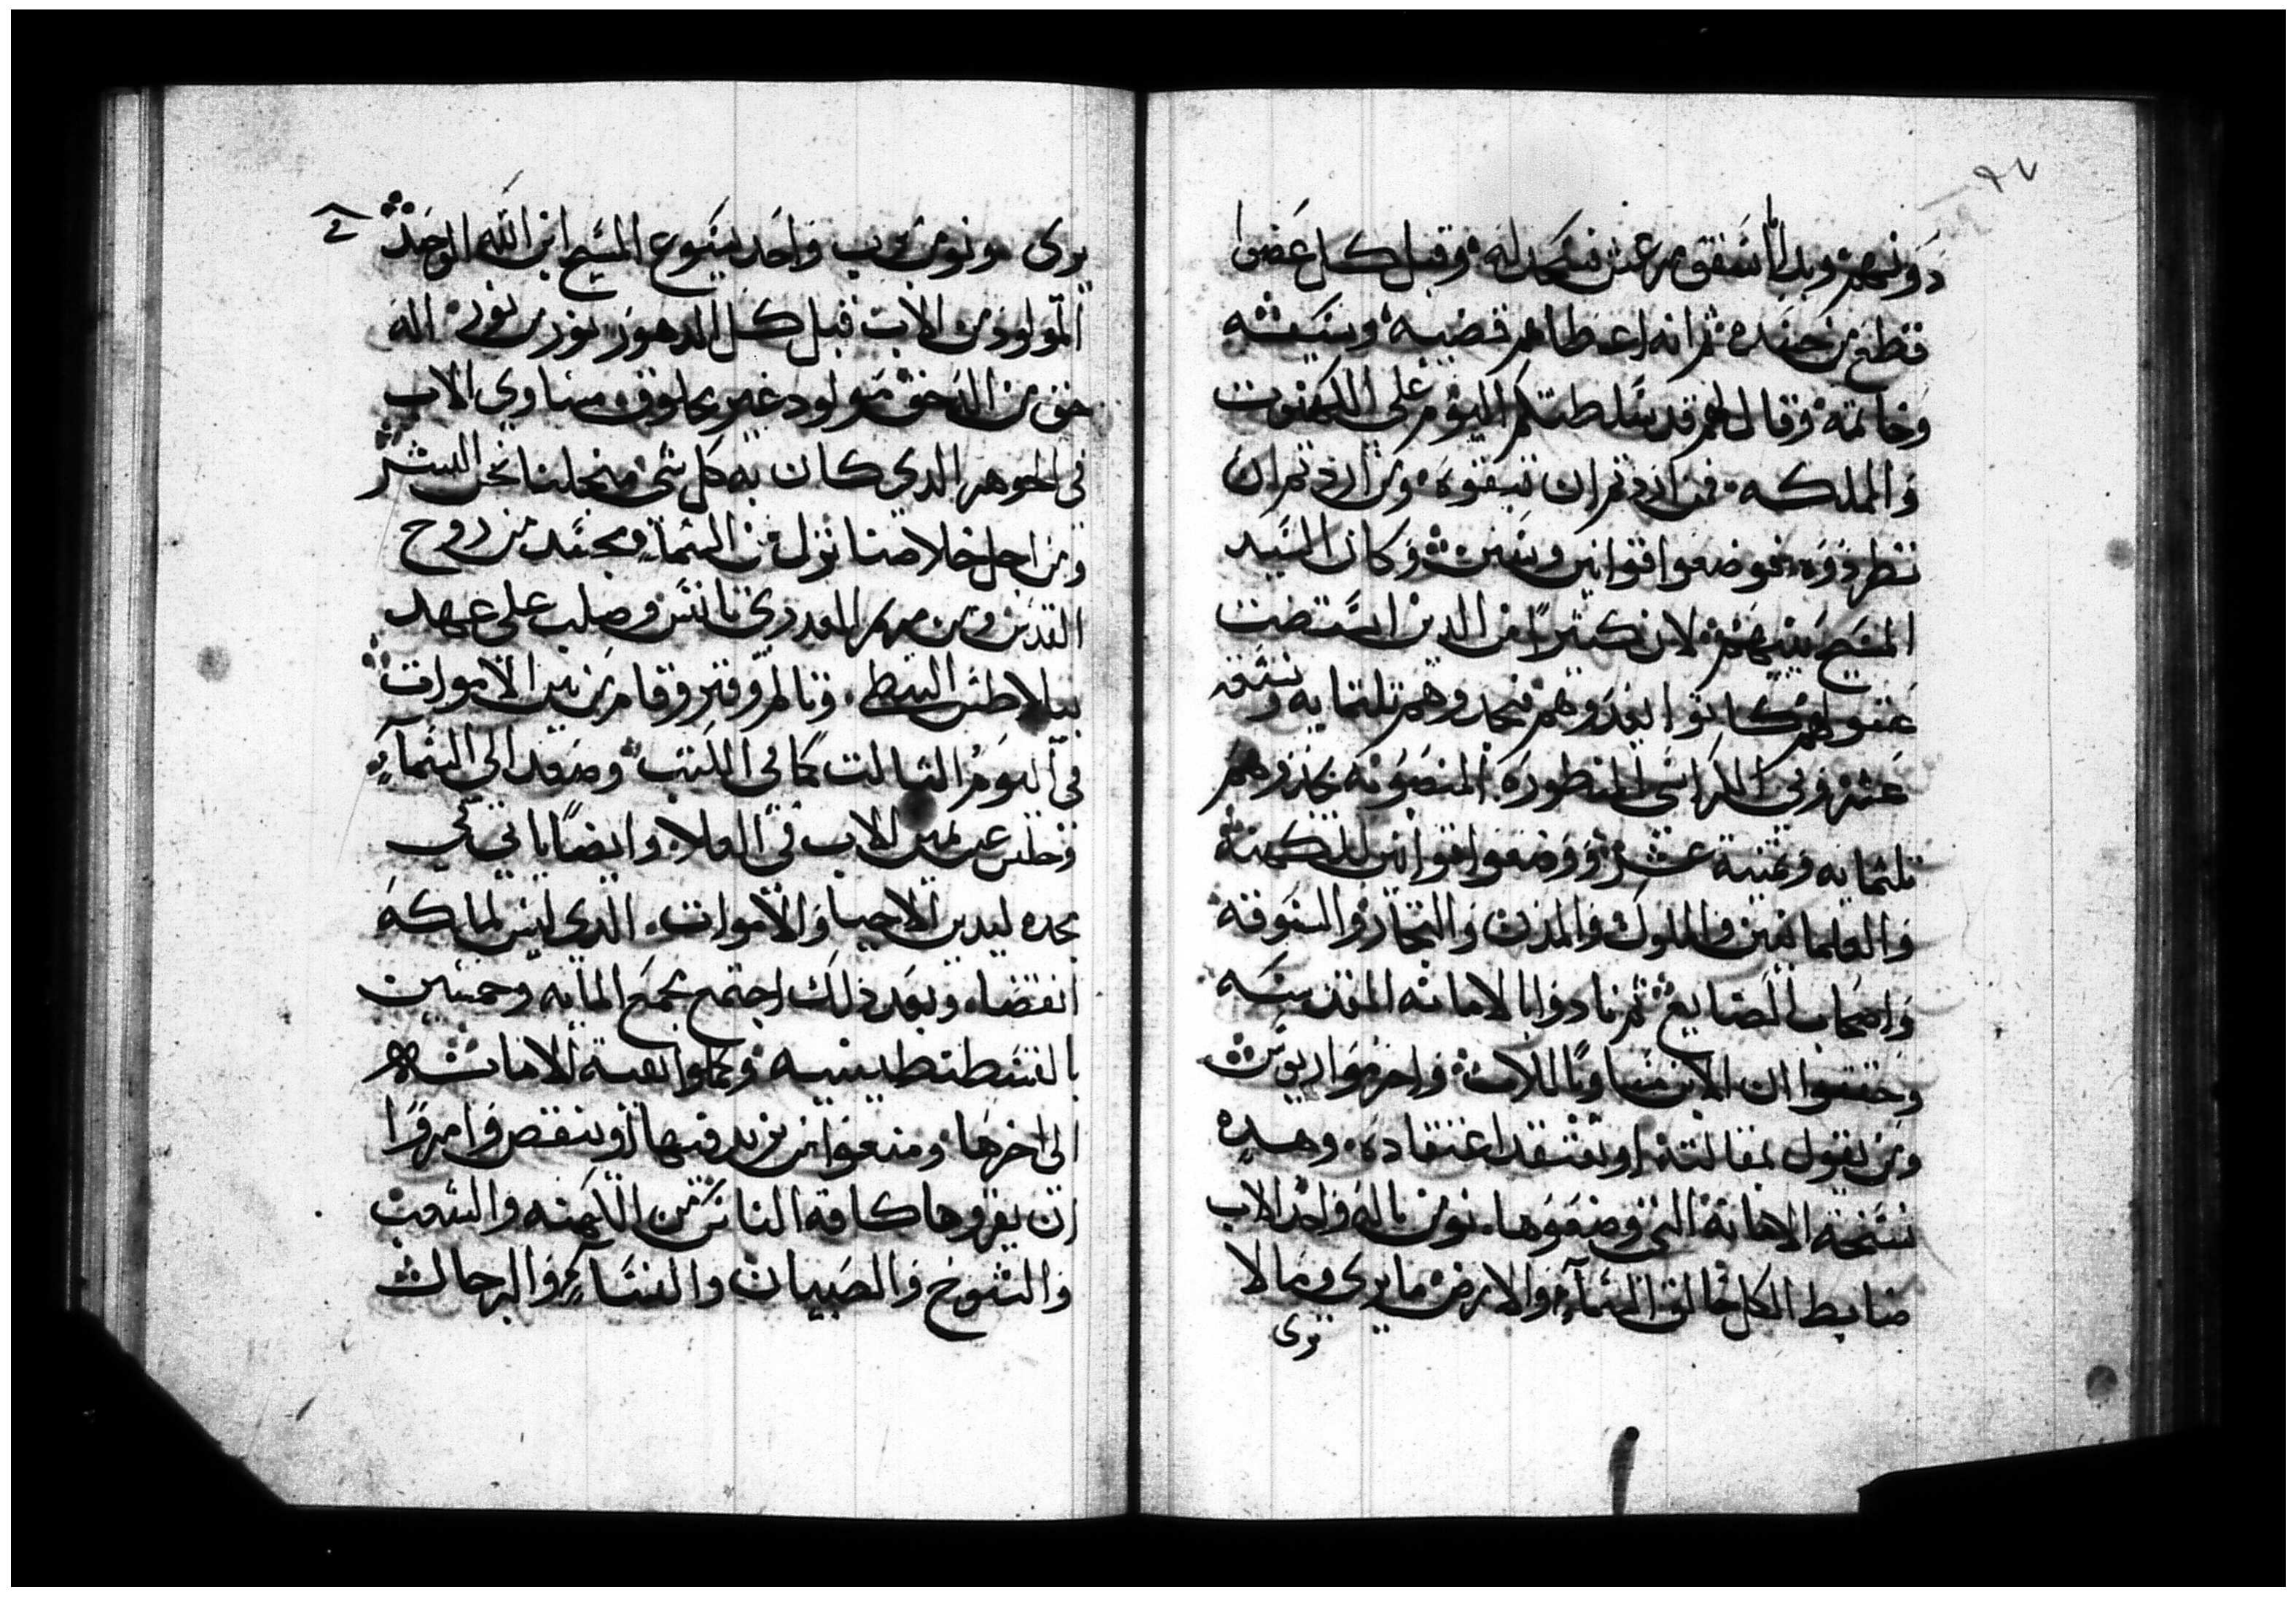 ٩٧
دونهم وبدا باسقف مرعش فسجد له وقبل كل عضوا
قطع من جسده ثم انه اعطاهم قضيبه وسيفه
وخاتمه وقال لهم قد سلطتكم اليوم على الكهنوت
والمملكه فمن اردتم ان تبقوه ومن اردتم ان
تطردوه فوضعوا قوانين وسنن وكان السيد
المسيح بينهم لان كثيرا من الدين استضت
عقولهم كانوا يعدوهم فيجدوهم تلتمايه وتسعة
عشر وفي الكراسي المنظوره المنصوبه يجدوهم
تلتمايه وتمنية عشر ووضعوا قوانين للكهنة
والعلمانيين والملوك والمدن والتجار والسوقه
واصحاب الصنايع ثم نادوا بالامانه المقدسه
وحققوا ان الابن مساويا للاب واحرموا اريوس
ومن يقول بمقالته او يعتقد اعتقاده وهده
نسخة الامانة التي وضعوها نومن باله واحد الاب
ضابط الكل خالق السمآء والارض ما يرى وما لا
يرى
يرى ونومن برب واحد يسوع المسيح ابن الله الوحيد
المولود من الاب قبل كل الدهور نور من نور اله
حق من اله حق مولود غير مخلوق مساوي الاب
في الجوهر الدي كان به كل شي من اجلنا نحن البشر
ومن اجل خلاصنا نزل من السما وتجسد من روح
القدس ومن مريم العدري تانس وصلب على عهد
بيلاطس البنطي وتالم وقبر وقام من بين الاموات
في اليوم التالت كما في الكتب وصعد الى السمآء
وجلس عن يمين الاب في العلا وايضا ياتي في
مجده ليدين الاحيا والاموات الدي ليس لملكه
انقضا وبعد ذلك اجتمع مجمع المايه وخمسين
بالقسطنطينيه وكملوا بقية الامانه
الى اخرها ومنعوا من يزيد فيها او ينقص وامروا
ان يقروها كافة الناس من الكهنه والشعب
والشيوخ والصبيان والنسآء والرجال